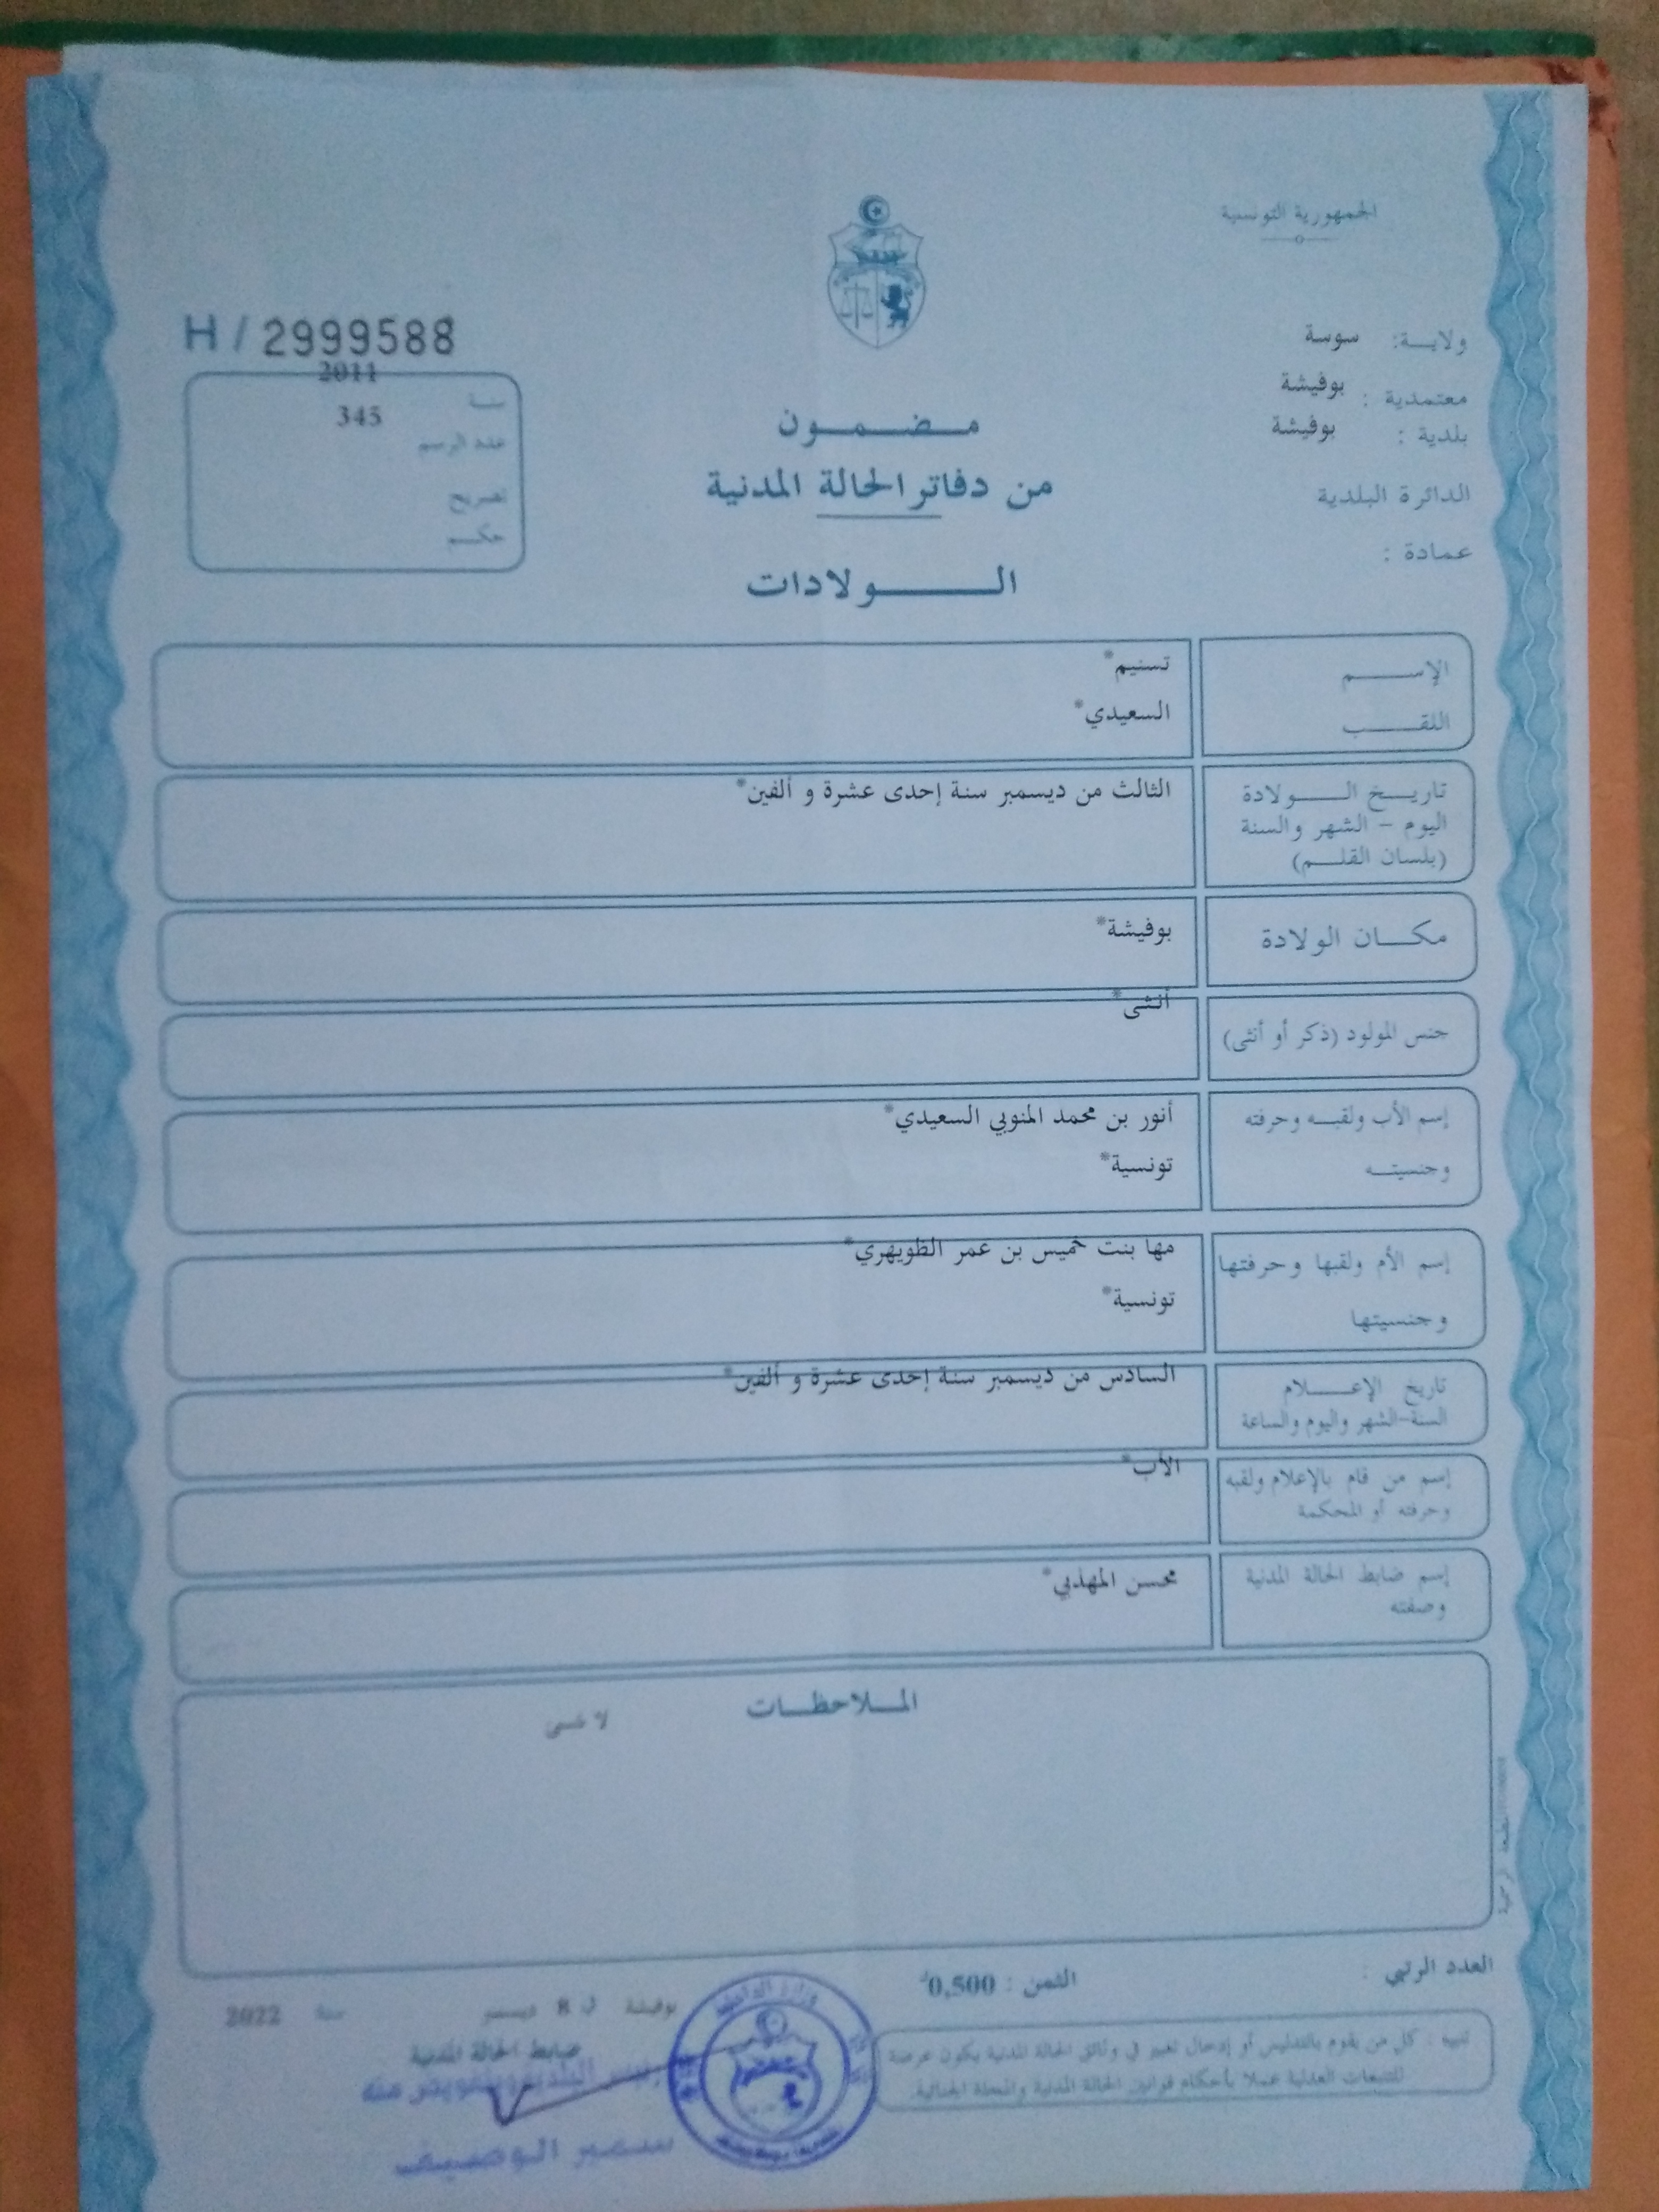 الجمهورية التونسية
ولاية: سوسة
معتمدية : بوفيشة
بلدية : بوفيشة
الدائرة البلدية
عمادة :
H / 2999588
2011
سنة
345
عدد الرسم
تصريح
حكم
مضمون
من دفاتر الحالة المدنية
الولادات
الإسم
تسنيم*
اللقب
السعيدي*
تاريخ الولادة
اليوم - الشهر والسنة
(بلسان القلم)
الثالث من ديسمبر سنة إحدى عشرة و ألفين*
مكان الولادة
بوفيشة*
جنس المولود (ذكر أو أنثى)
أنثى*
إسم الأب ولقبه وحرفته
وجنسيته
أنور بن محمد المنوبي السعيدي*
تونسية*
إسم الأم ولقبها وحرفتها
وجنسيتها
مها بنت خميس بن عمر الظويهري*
تونسية*
تاريخ الإعلام
السنة-الشهر واليوم والساعة
السادس من ديسمبر سنة إحدى عشرة و ألفين*
إسم من قام بالإعلام ولقبه
وحرفته أو المحكمة
الأب*
إسم ضابط الحالة المدنية
وصفته
محسن المهذبي*
الملاحظات
لا شيء
العدد الرتبي :
الثمن : 0,500د
تنبيه : كل من يقوم بالتدليس أو إدخال تغيير في وثائق الحالة المدنية يكون عرضة
للتتبعات العدلية عملا بأحكام قوانين الحالة المدنية والمجلة الجنائية.
بوفيشة في 8 ديسمبر سنة 2022
ضابط الحالة المدنية
وزارة الداخلية